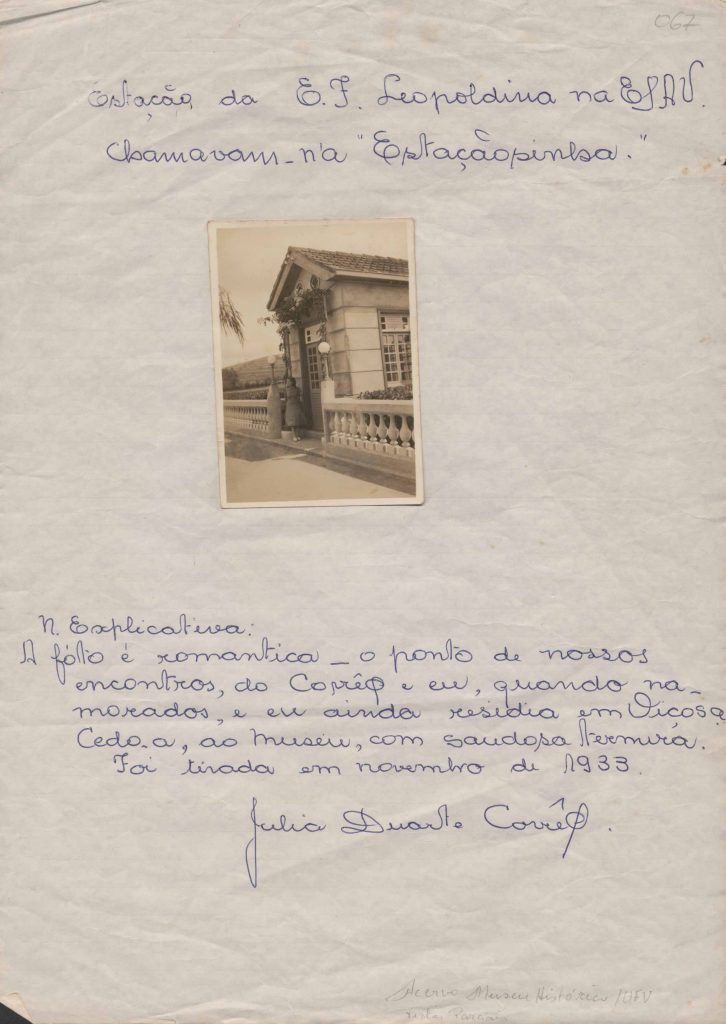 067
Estação da E.F. Leopoldina na ESAV.
Chamavam-n'a "Estaçãopinha."
N. Explicativa:
A fóto é romantica _ o ponto de nossos
encontros, do Corrêa e eu, quando na-
morados, e eu ainda residia em Viçosa
Cedo-a, ao Museu, com saudosa ternura.
Foi tirada em novembro de 1933.
Julia Duarte Corrêa.
Acervo Museu Histórico /UFV
Vistas Parciais